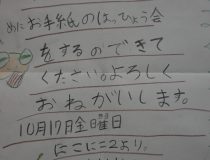 めにお手紙のはっぴょう会
をするのできて
ください。よろしく
おねがいします。
10月17日金曜日
にこにこ2より。